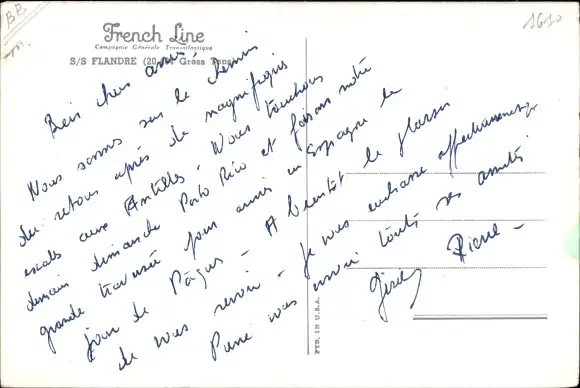 BB
1610
French Line
Compagnie Générale Transatlantique
S/S FLANDRE (20,
Gross Tons)
Bien chers amis,
Nous sommes sur le chemin
du retour après de magnifiques
escales aux Antilles - Nous touchons
demain dimanche Porto Rico et faisons notre
grande traversée pour arriver en Espagne le
jour de Pâques - A bientôt le plaisir
de vous revoir - Je vous embrasse affectueusement
Pierre vous envoie toutes ses amitiés
Pierre -
PTD. IN U.S.A.